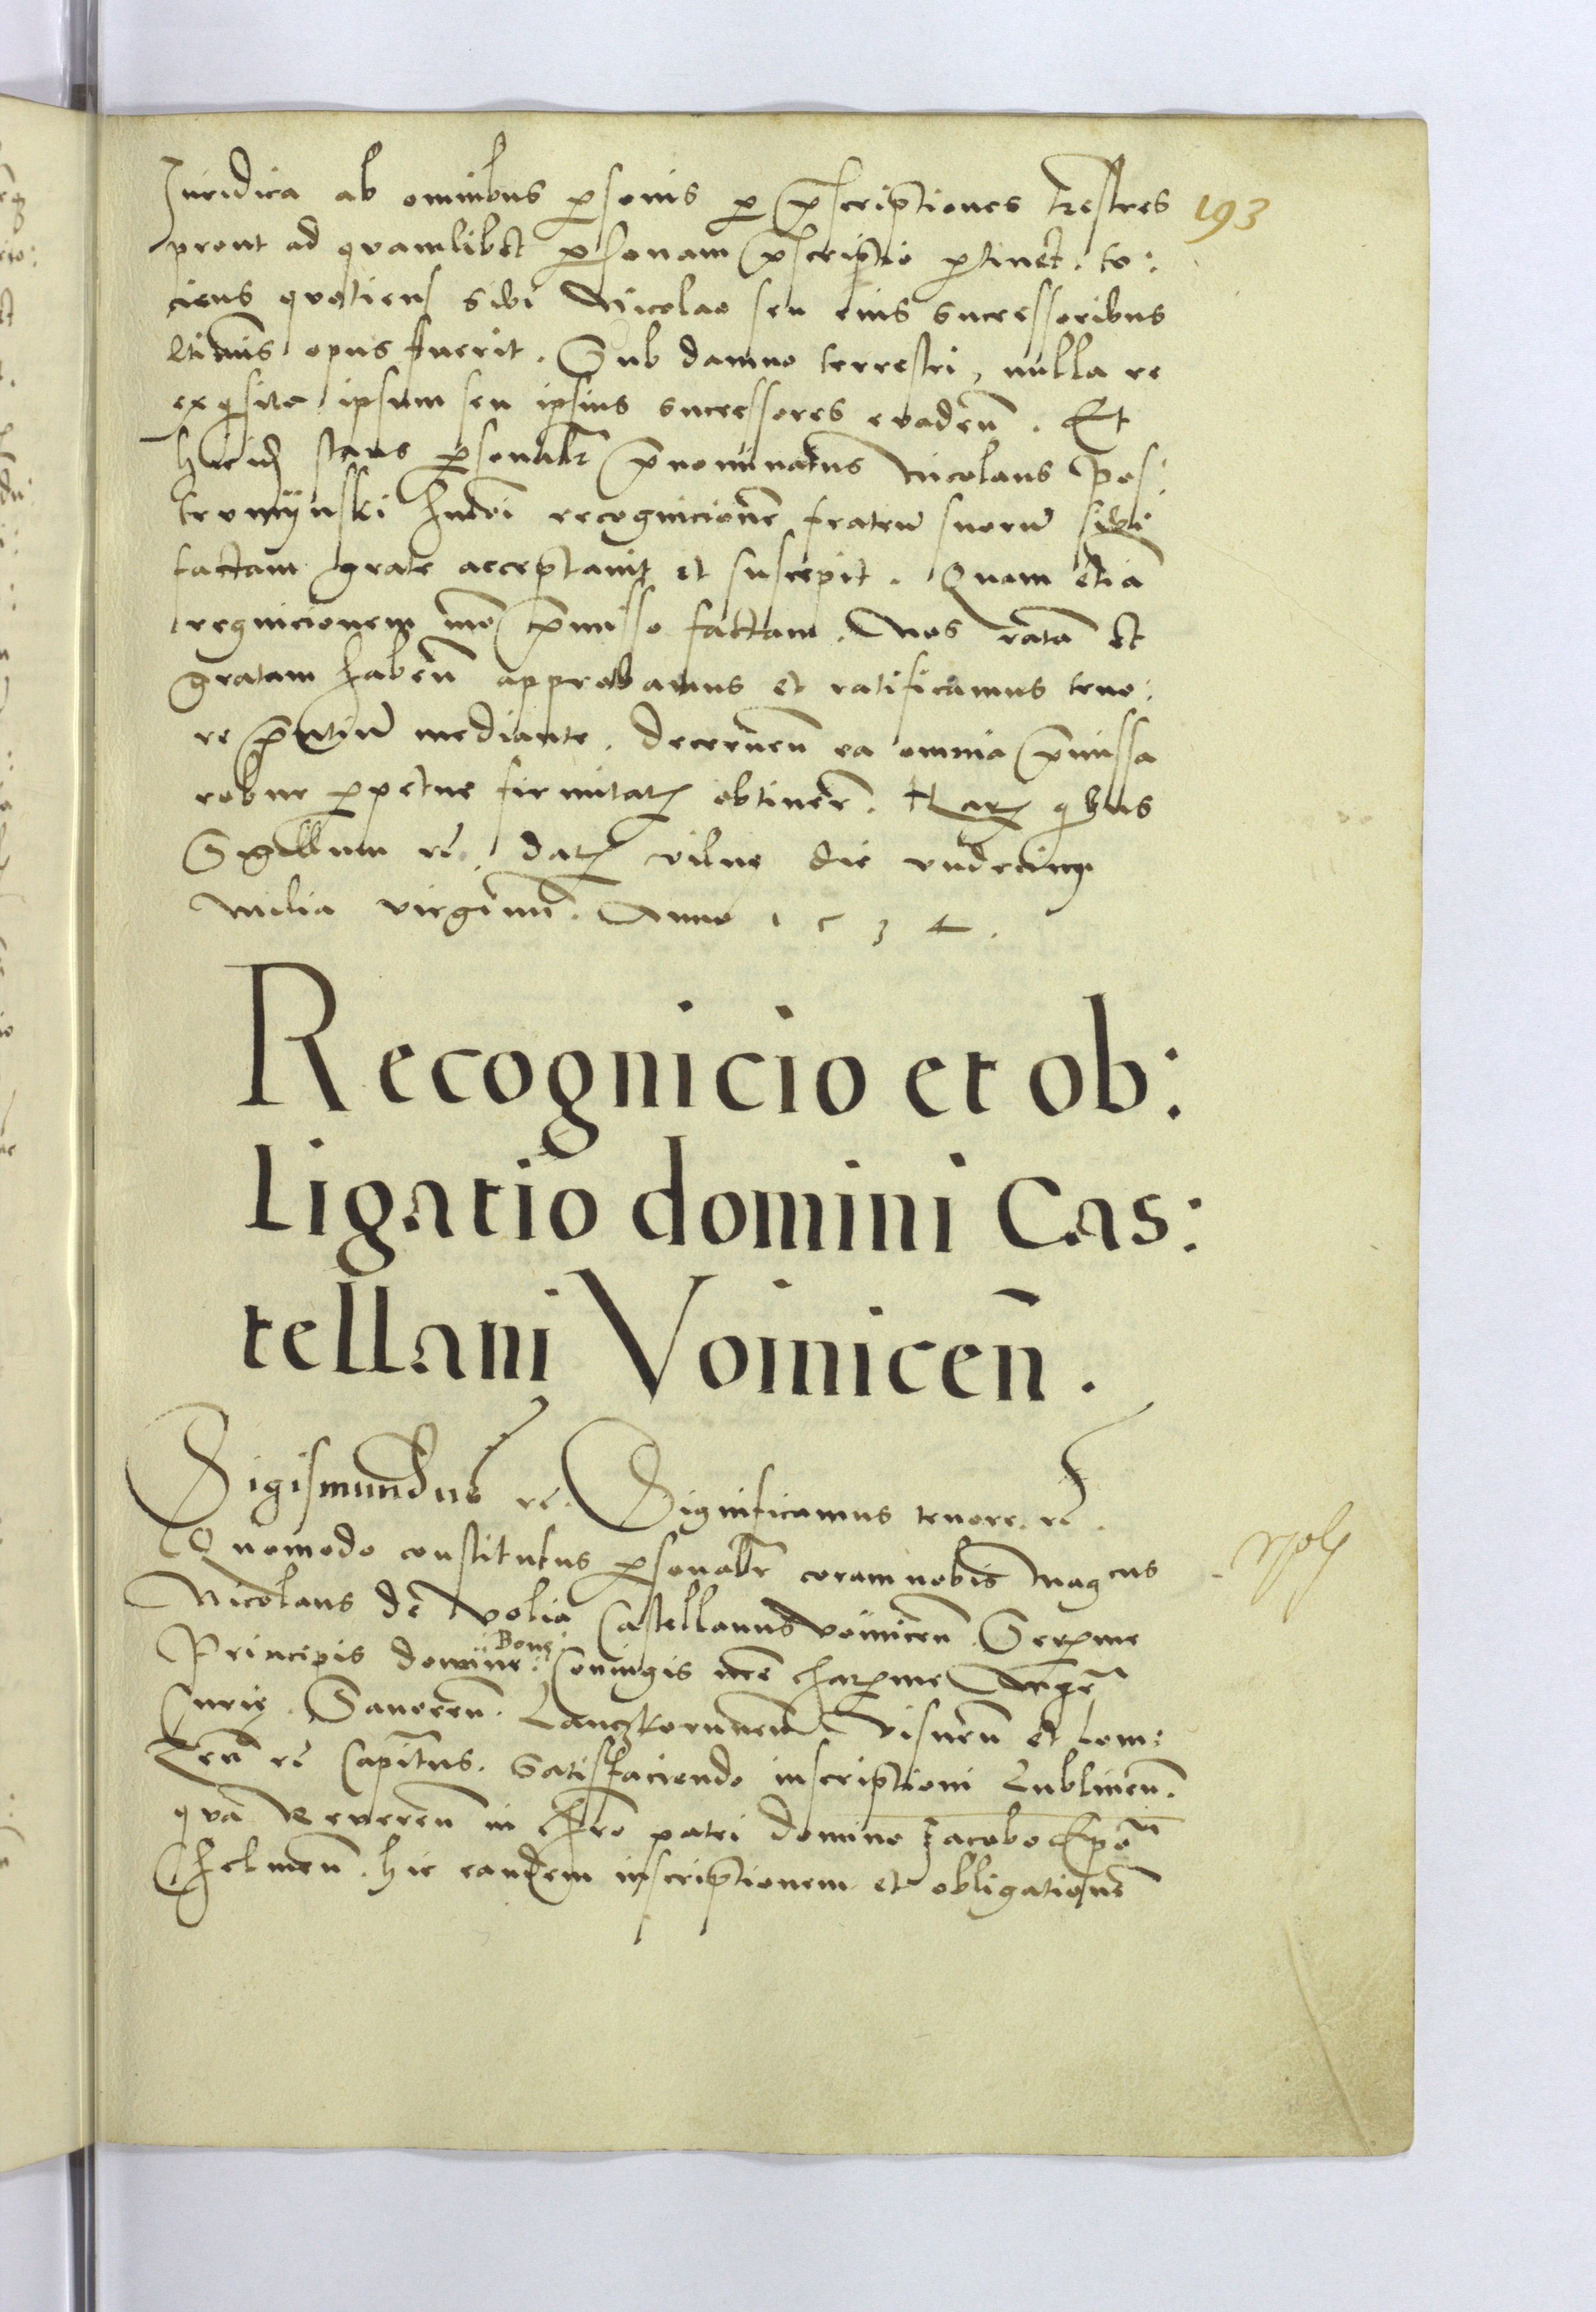 Iuridica ab omnibus psonis p pscriptiones trestres 193
prout ad quamlibet psonam pscriptio ptinet. to:
ciens quotiens sibi Nicolao seu eius successoribus
ltimis opus fuerit. Sub damno terrestri, nulla re
exqsita ipsum seu ipsius successores evadeñ. Et
hic stans psonalr pnominatus Nicolaus Pos:
tromijnski hmoi recognicionē fratrū suorū sibi
factam grate acceptavit et suscepit. Quam etiā
recognicionem mō pmisso factam. Nos ratā et
gratam habeñ approbamus et ratificamus teno:
re pntiū mediante. decerneñ ea omnia pmissa
robur ppetue firmitatz obtinere. Harz qbus
Sigillum rē. datz vilne die undecim
milia virginū. Anno 1534.
Recognicio et ob:
ligatio domini Cas:
tellani Voinicen̄.
Sigismundus rē. Significamus tenore. rē.
Quomodo constitutus psonalr coram nobis Magcus
Nicolaus de Volia Castellanus voinicen̄. Serme
Principis domine Bone Coniugis nrē charme Mgr
Curie. Sanocen̄. Lanczkorunen̄. Visnen̄ et lom:
zen̄ rē Capitus. Satisfaciendo inscriptioni Lublinen̄.
quā Reveren̄ in chro patri domino Jacobo Epō
Chelmen̄. hic eandem inscriptionem et obligationē